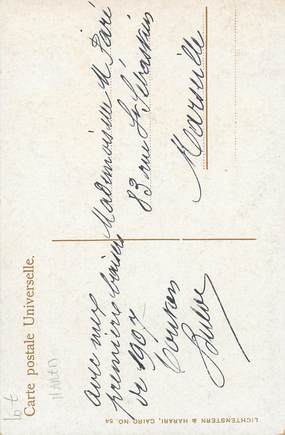 Carte postale Universelle.
avec mes
premiers baisers
de 1907
Mademoiselle M Paré
83 rue St Sébastien
Marseille
LICHTENSTERN & HARARI, CAIRO NO. 54